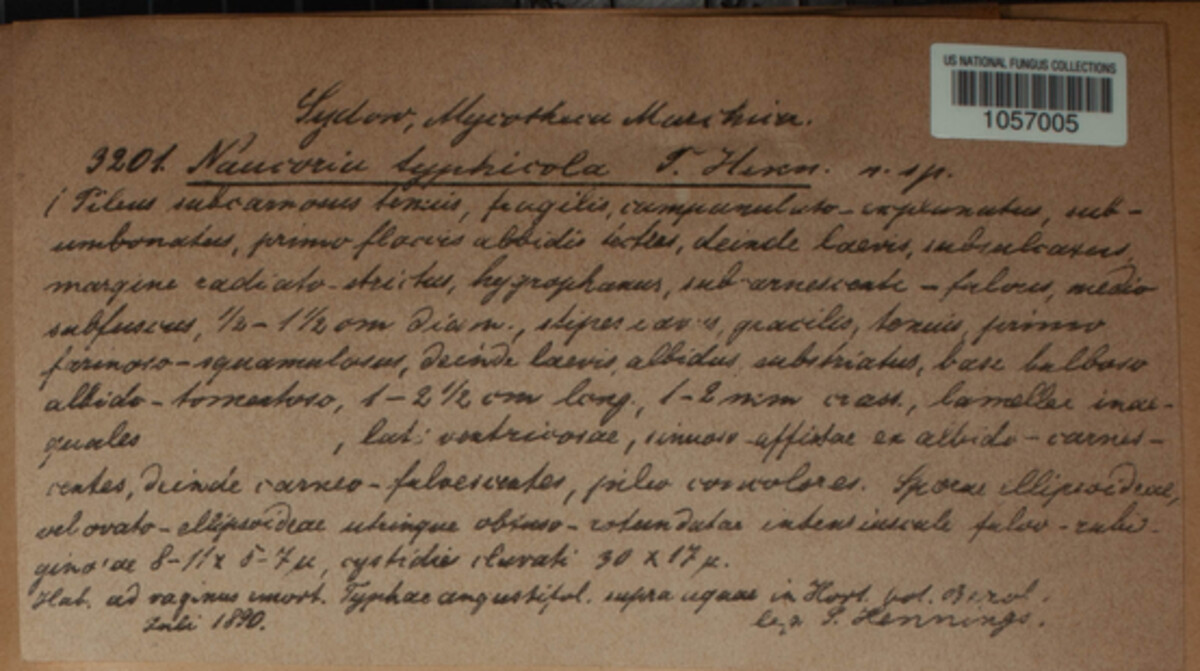 US NATIONAL FUNGUS COLLECTIONS
1057005
Sydow, Mycotheca Marchica.
3201. Naucoria typhicola P. Henn. n. sp.
( Pileus subcarnosus tenuis, fragilis, campanulato-explanatus, sub-
umbonatus, primo floccis albidis tectus, deinde laevis, subsulcatus,
margine radiato-strictus, hygrophanus, subcarnescente-fulvus, medio
subfuscus, ½-1½ cm diam., stipes cavus, gracilis, tenuis, primo
farinoso-squamulosus, deinde laevis, albidus, substriatus, base bulboso
albido-tomentoso, 1-2½ cm long., 1-2 mm crass., lamellae inae-
quales , lat. ventricosae, sinuoso-affixae ex albido-carnes-
centes, deinde carneo-fulvescentes, pileo concolores. Sporae ellipsoideae,
vel ovato-ellipsoideae utrinque obtuso-rotundatae intensiuscule fulvo-rubi-
ginosae 8-11 x 5-7 µ, cystidiis clavati 30 x 17 µ.
Hab. ad vaginas emort. Typhae angustifol. supra aquae in Hort. bot. Berol.
Juli 1890.
leg. P. Hennings.